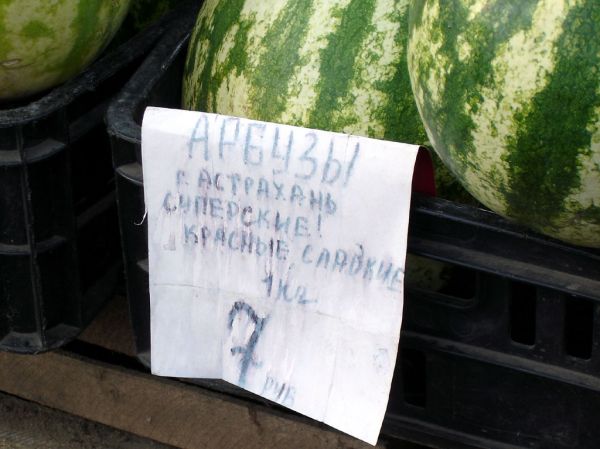 АРБУЗЫ
г. АСТРАХАНЬ
СУПЕРСКИЕ!
КРАСНЫЕ СЛАДКИЕ
1 кг
7
руб